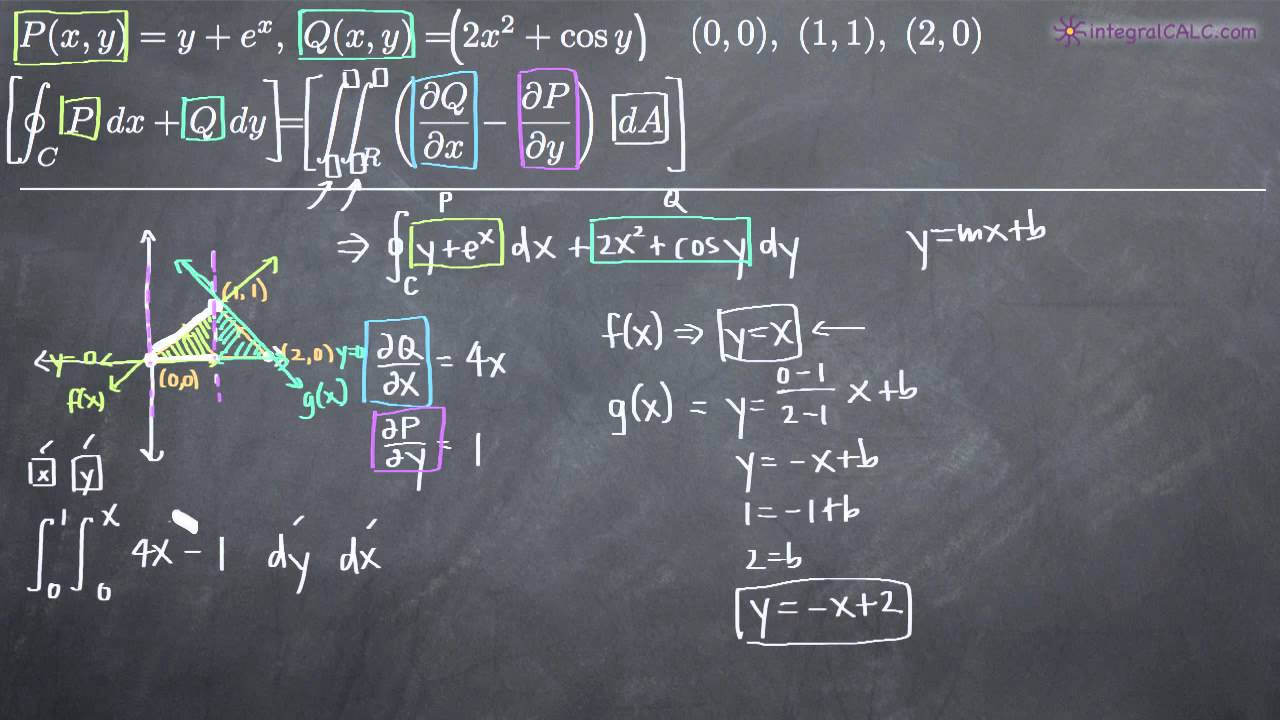 P(x, y) = y + eˣ, Q(x, y) = (2x² + cos y) (0, 0), (1, 1), (2, 0)
integralCALC.com
[∮_C P dx + Q dy] = [∬_R (∂Q/∂x − ∂P/∂y) dA]
P Q
⇒ ∮_C y+eˣ dx + 2x²+cosy dy
y=mx+b
(1,1)
y=0 (2,0) y=0
(0,0)
f(x) g(x)
∂Q/∂x = 4x
∂P/∂y = 1
f(x) ⇒ y=x ←
g(x) = y= (0-1)/(2-1) x+b
y= -x+b
1=-1+b
2=b
y=-x+2
x y
∫₀¹ ∫₀ˣ 4x-1 dy dx